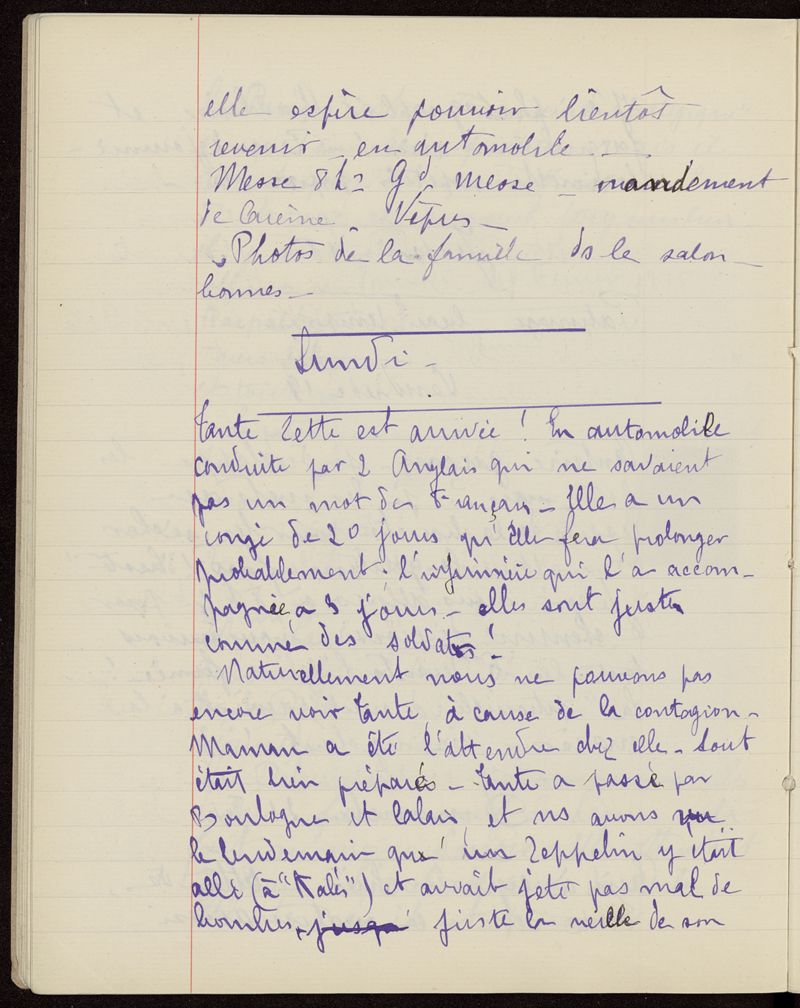 elle espère pouvoir bientôt
revenir en automobile. —
Messe 8h 2 Gd messe — mandement
de Carême Vêpres —
Photos de la famille ds le salon —
bonnes —
Lundi —
Tante Zette est arrivée ! En automobile
conduite par 2 Anglais qui ne savaient
pas un mot de français — Elle a un
congé de 20 jours qu'elle fera prolonger
probablement ; l'infirmière qui l'a accom-
pagnée a 3 jours — elles sont juste
comme des soldats !
Naturellement nous ne pouvons pas
encore voir Tante, à cause de la contagion —
Maman a été l'attendre chez elle — tout
était bien préparé — Tante a passé par
Boulogne et Calais, et ns avons su
le lendemain que un Zeppelin y était
allé (à "Kalés") et avait jeté pas mal de
bombes, jusqu' juste la veille de son